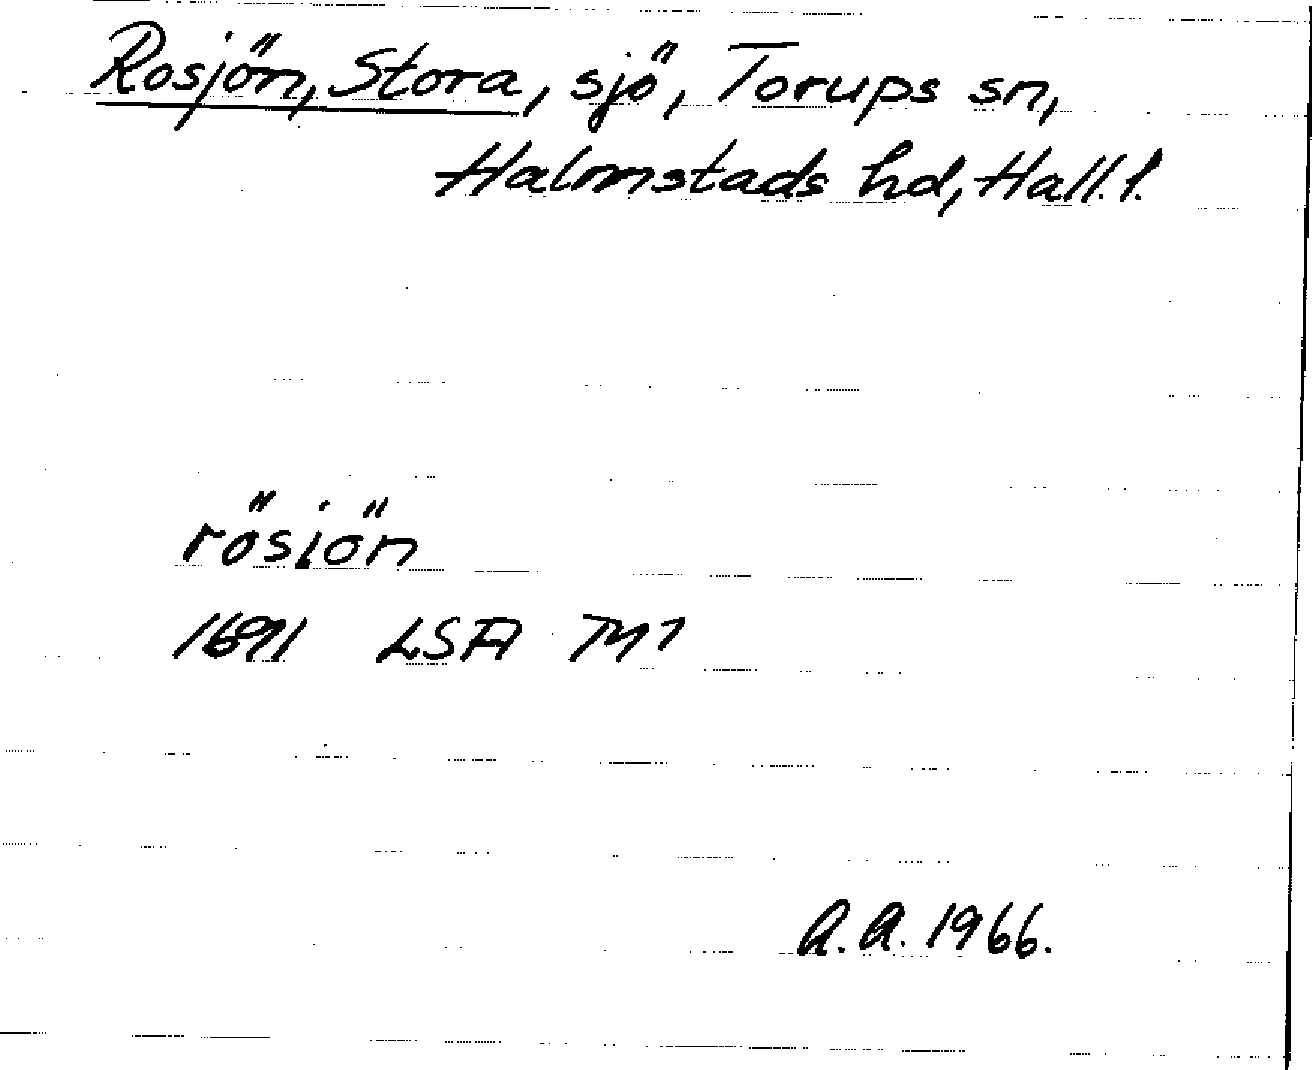 Rosjön, Stora, sjö, Torups sn,
Halmstads hd, Hall. l.
rösiön
1691 LSA M1
A.A. 1966.